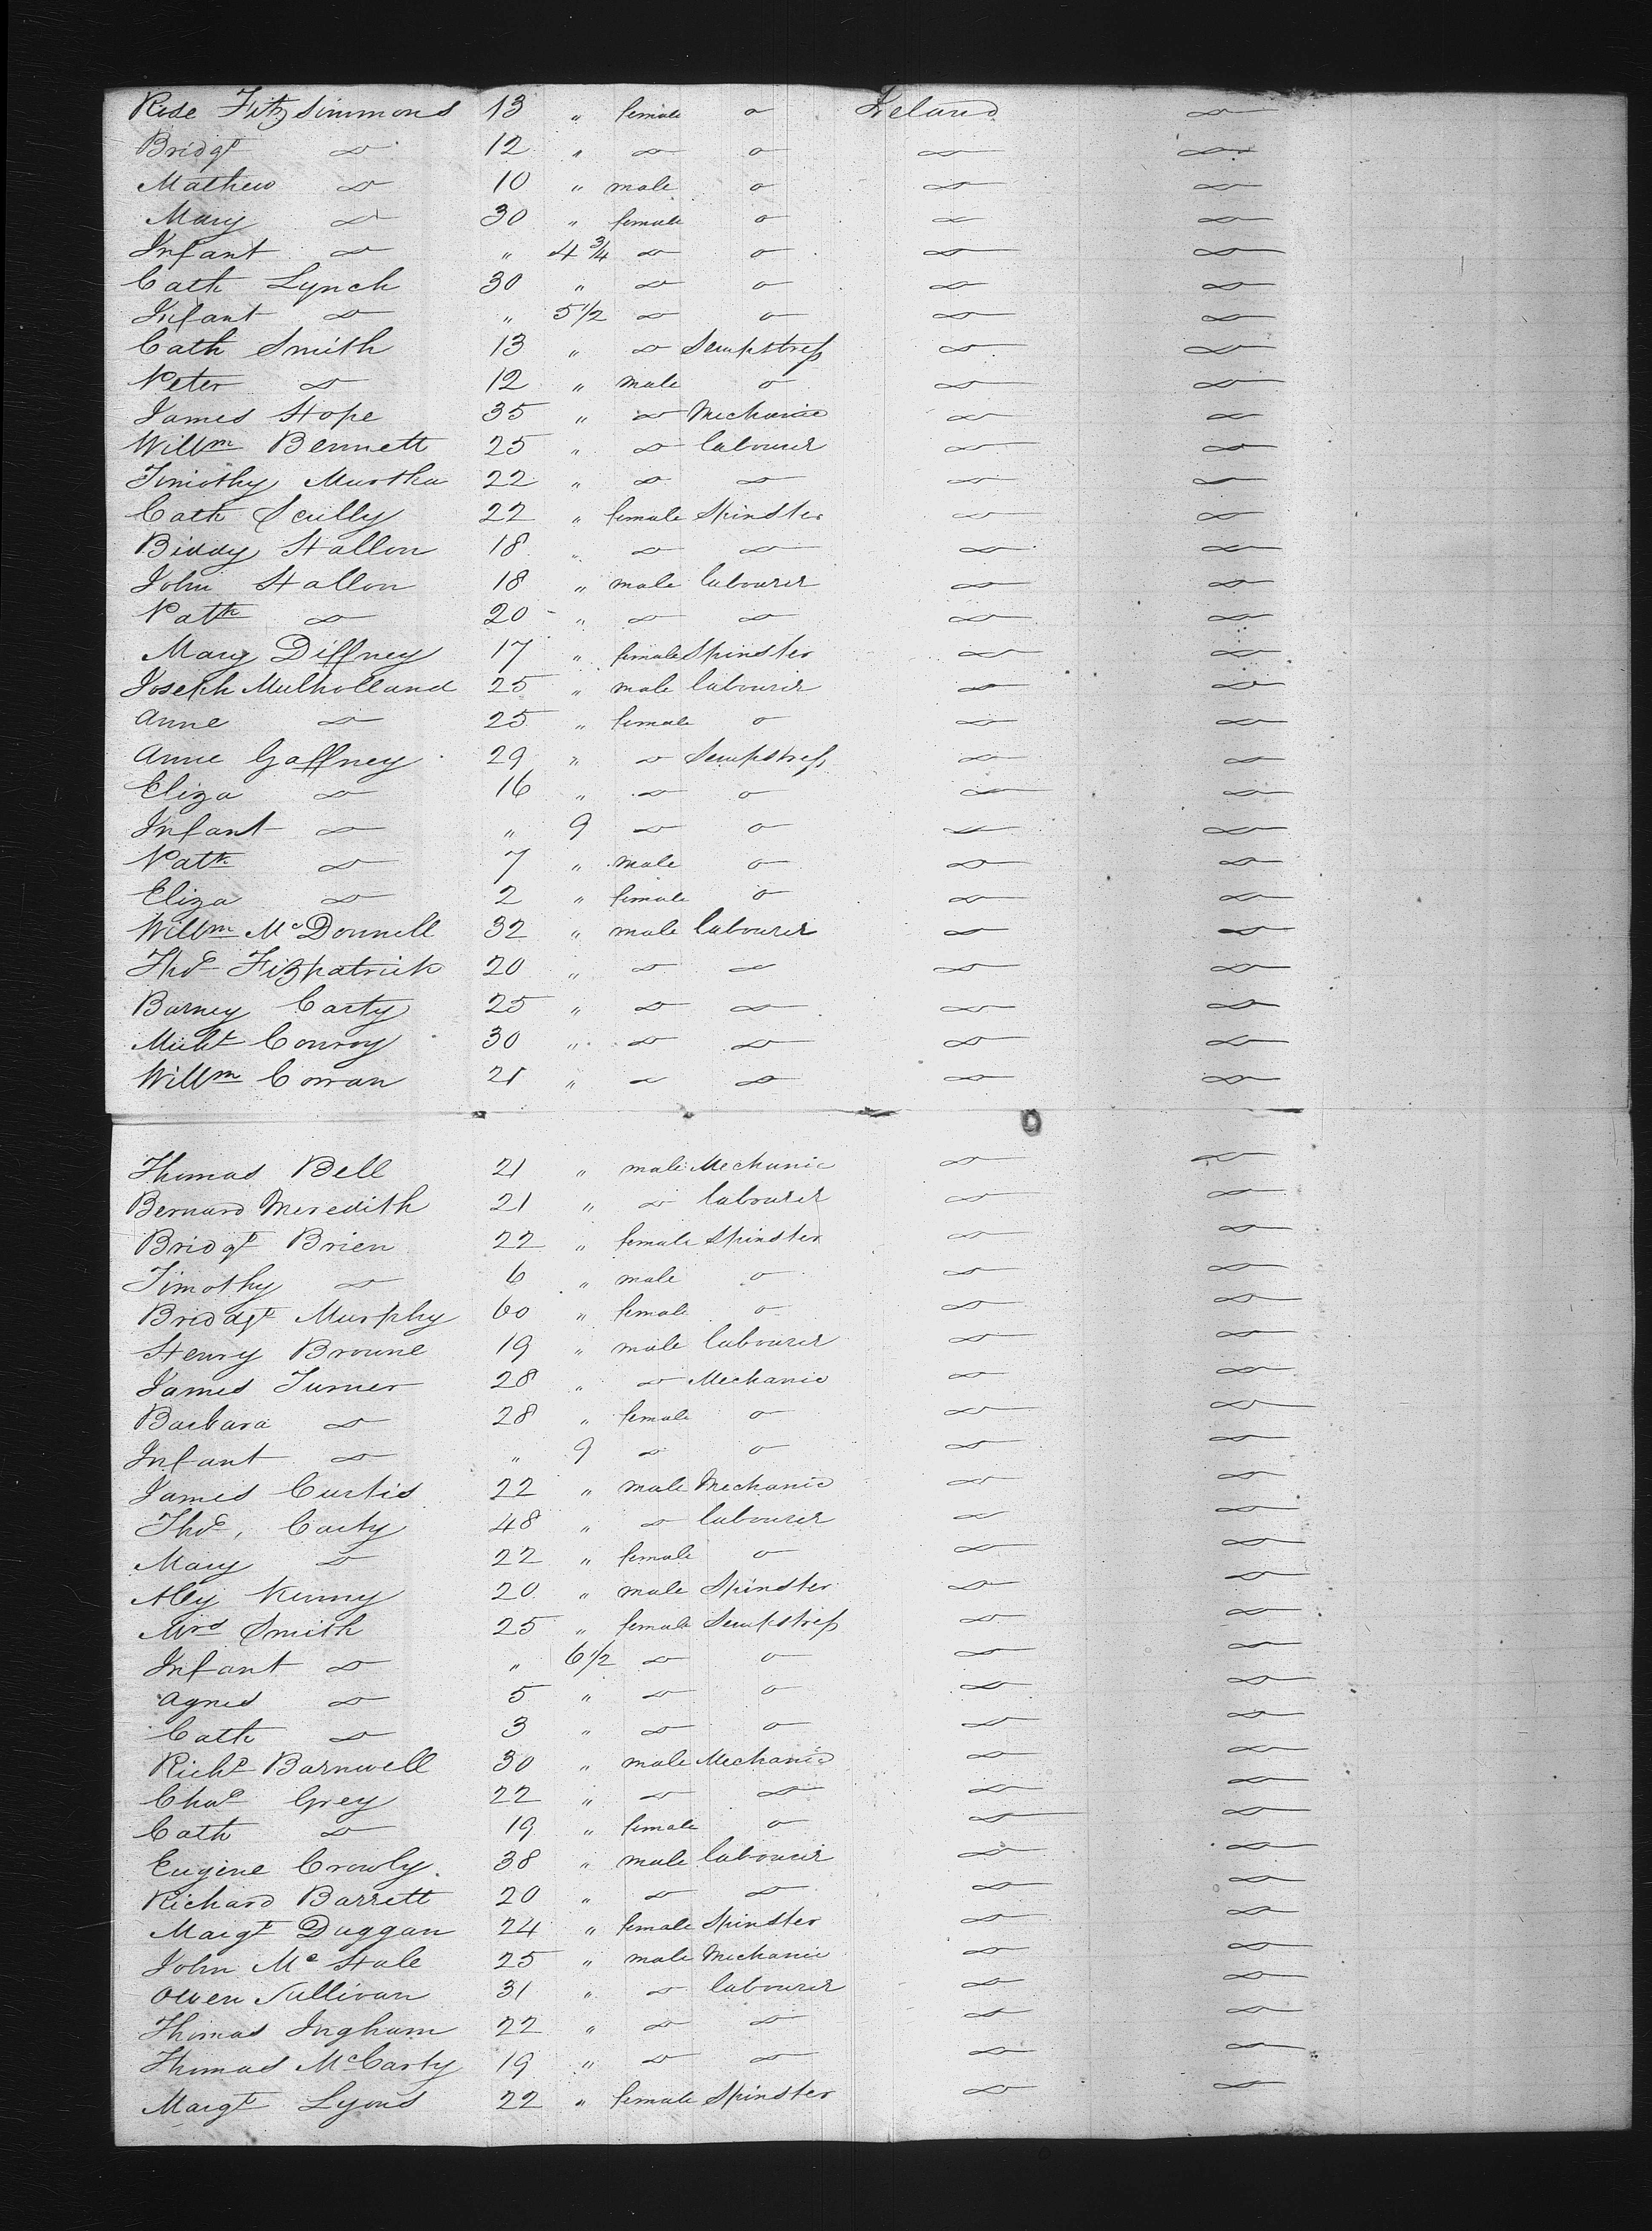 Rose Fitzsimmons 13 " female o Ireland do
Bridgt do 12 " do o do do
Mathew do 10 " male o do do
Mary do 30 " female o do do
Infant do " 4 3/4 do o do do
Cath Lynch 30 " do o do do
Infant do " 5 1/2 do o do do
Cath Smith 13 " do Sempstress do do
Peter do 12 " male o do do
James Hope 35 " do Mechanic do do
Willm Bennett 25 " do labourer do do
Timothy Murtha 22 " do do do do
Cath Scully 22 " female Spinster do do
Biddy Hallon 18 " do do do do
John Hallon 18 " male labourer do do
Patk do 20 " do do do do
Mary Diffney 17 " female Spinster do do
Joseph Mulholland 25 " male labourer do do
Anne do 25 " female o do do
Anne Gaffney 29 " do Sempstress do do
Eliza do 16 " do o do do
Infant do " 9 do o do do
Patk do 7 " male o do do
Eliza do 2 " female o do do
Willm McDonnell 32 " male labourer do do
Thos Fitzpatrick 20 " do do do do
Barney Carty 25 " do do do do
Michl Conroy 30 " do do do do
Willm Cowan 21 " do do do do
Thomas Bell 21 " male Mechanic do do
Bernard Meredith 21 " do labourer do do
Bridgt Brien 22 " female Spinster do do
Timothy do 6 " male o do do
Bridgt Murphy 60 " female o do do
Henry Browne 19 " male labourer do do
James Turner 28 " do Mechanic do do
Barbara do 28 " female o do do
Infant do " 9 do o do do
James Curtis 22 " male Mechanic do do
Thos, Carty 48 " do labourer do do
Mary do 22 " female o do do
Ally Kenny 20 " male Spinster do do
Mrs Smith 25 " female Sempstress do do
Infant do " 6 1/2 do o do do
Agnes do 5 " do o do do
Cath do 3 " do o do do
Richd Barnwell 30 " male Mechanic do do
Chas Grey 22 " do do do do
Cath do 19 " female o do do
Eugene Crowly 38 " male labourer do do
Richard Barrett 20 " do do do do
Margt Duggan 24 " female Spinster do do
John McHale 25 " male Mechanic do do
Owen Sullivan 31 " do labourer do do
Thomas Ingham 22 " do do do do
Thomas McCarty 19 " do do do do
Margt Lyons 22 " female Spinster do do